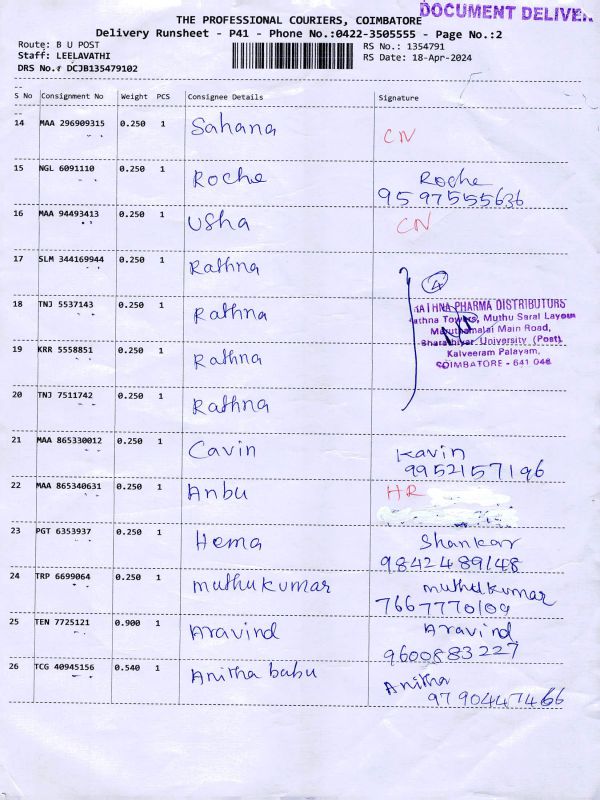 DOCUMENT DELIVER
THE PROFESSIONAL COURIERS, COIMBATORE
Delivery Runsheet - P41 - Phone No.:0422-3505555 - Page No.:2
Route: B U POST RS No.: 1354791
Staff: LEELAVATHI RS Date: 18-Apr-2024
DRS No.: DCJB135479102
S No Consignment No Weight PCS Consignee Details Signature
14 MAA 296909315 0.250 1 Sahana CN
15 NGL 6091110 0.250 1 Roche Roche
9597555636
16 MAA 94493413 0.250 1 Usha CN
17 SLM 344169944 0.250 1 Rathna
4
18 TNJ 5537143 0.250 1 Rathna
RATHNA PHARMA DISTRIBUTORS
Rathna Towers, Muthu Saral Layout
Maruthamalai Main Road,
Bharathiyar University (Post),
Kalveeram Palayam,
COIMBATORE - 641 046
19 KRR 5558851 0.250 1 Rathna
20 TNJ 7511742 0.250 1 Rathna
21 MAA 865330012 0.250 1 Cavin Kavin
9952157196
22 MAA 865340631 0.250 1 Anbu HR
23 PGT 6353937 0.250 1 Hema Shankar
9842489148
24 TRP 6699064 0.250 1 muthukumar muthukumar
7667770109
25 TEN 7725121 0.900 1 Aravind Aravind
9600883227
26 TCG 40945156 0.540 1 Anitha babu Anitha
9790447466